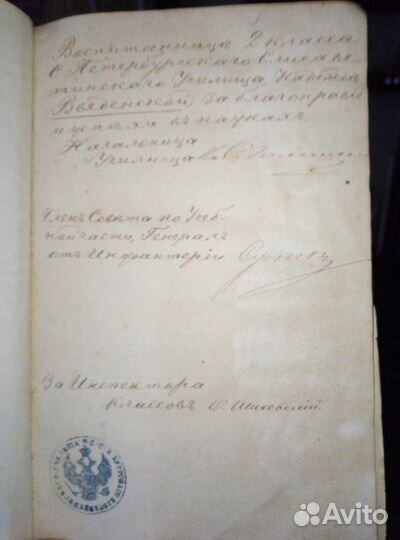 Воспитанницѣ 2 класса
С Петербургскаго Елисаве-
тинскаго Училища,
Введенской, за благонравіе
и успѣхи въ наукахъ.
Начальница
Училища
Членъ Совѣта по Учеб-
ной части, Генералъ
отъ Инфантеріи
За Инспектора
классовъ
Avito